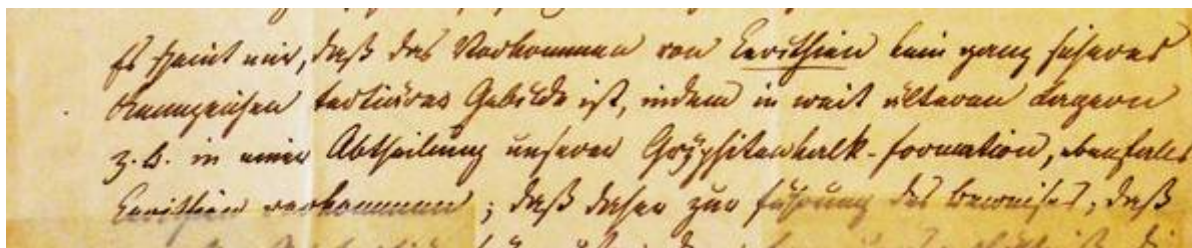 Es scheint mir, daß das Vorkommen von Cerithien kein ganz sicheres
Kennzeichen tertiärer Gebilde ist, indem in weit älteren Lagern
z. B. in einer Abtheilung unserer Gryphitenkalk-formation, ebenfalls
Cerithien vorkommen; daß daher zur führung des beweises, daß